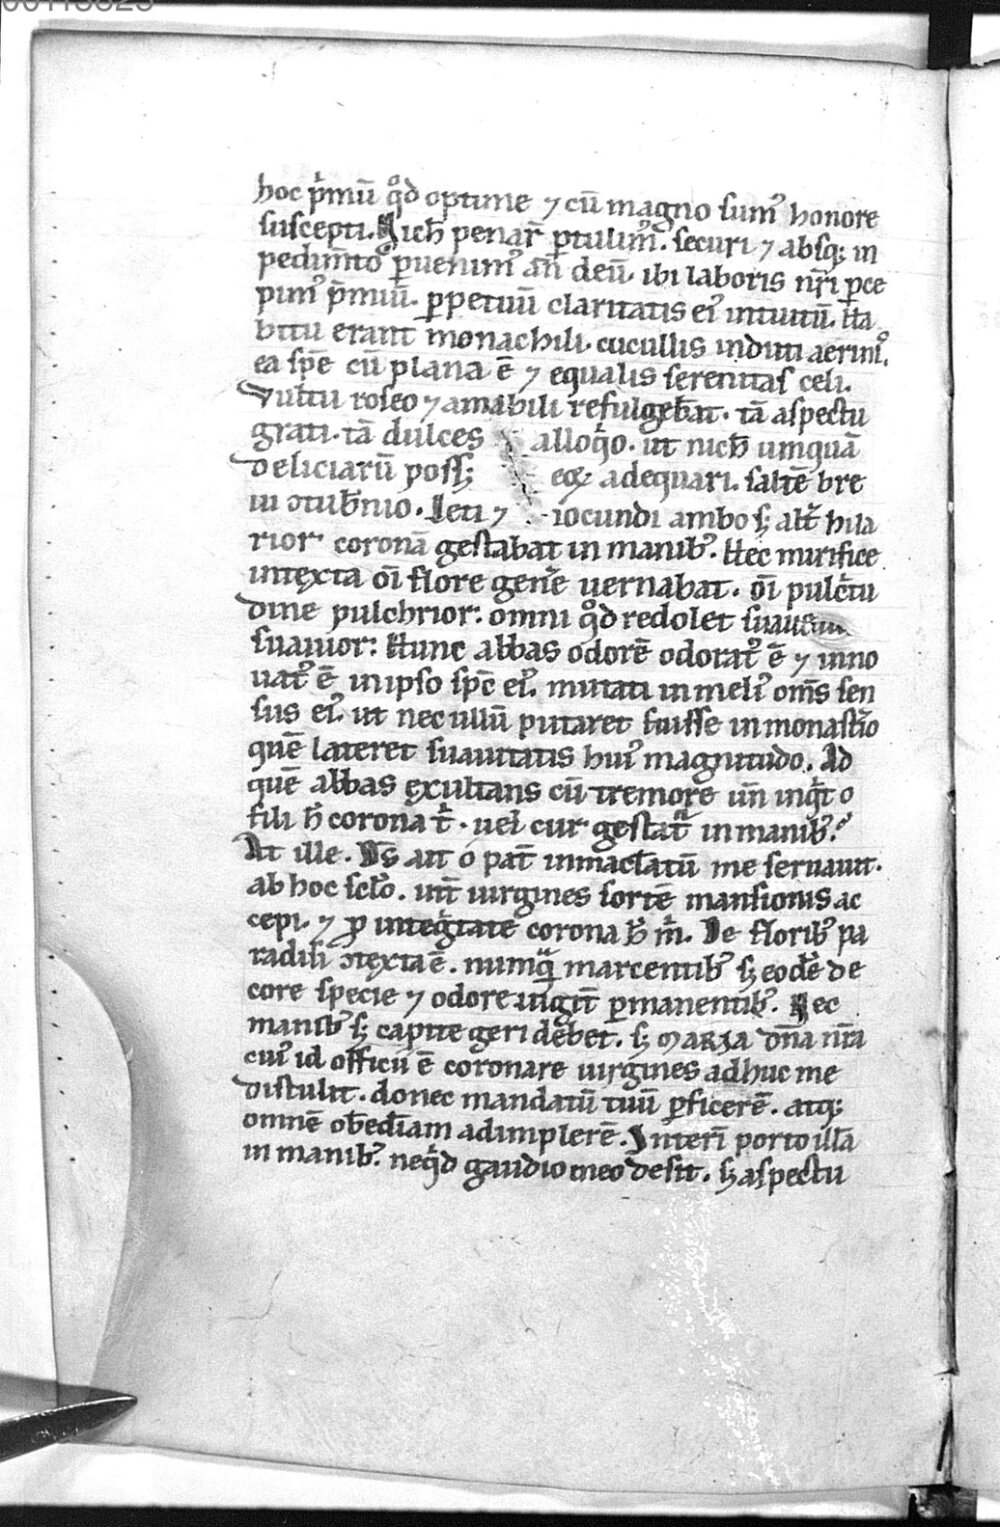 hoc p̾mū qͦd optime ⁊ cū magno sumꝰ honore
suscepti. Nich̄ penar̄ ꝑtulimꝰ. securi ⁊ absq; in
pedim̄to ꝑuenimꝰ an̄ deū. ibi laboris nr̄i ꝑce
pimꝰ p̄miū. ꝑpetuū claritatis eiꝰ intuitū. Ha
bitu erant monachili. cucullis induti aerinꝰ.
ea sp̄e cū plana ē ⁊ equalis serenitas celi.
Vultu roseo ⁊ amabili refulgebāt. tā aspectu
grati. tā dulces alloqͦo. ut nich̄ umquā
deliciarū poss; eoꝝ adequari. saltē bre
ui ↄtub̄nio. Leti ⁊ iocundi ambo s; alt̄ hila
rior coronā gestabat in manibꝰ. Hec mirifice
intexta oī flore gen̄e uernabat. oī pulc̄tu
dine pulchrior: omni qͦd redolet
suauior: Hunc abbas odorē odoratꝰ ē ⁊ inno
uatꝰ ē in ipso sp̄c eiꝰ. mutati in meliꝰ om̄s sen
sus eiꝰ. ut nec ullū putaret fuisse in monast̄io
quē lateret suauitatis huiꝰ magnitudo. Ad
quē abbas exultans cū tremore un̄ inq̇t o
fili h̄ corona t̄. uel cur gestat̄ in manibꝰ?
At ille. Ds̄ ait o pat̄ inmac̄latū me seruauit.
ab hoc sc̄lo. int̄ uirgines sortē mansionis ac
cepi. ⁊ ꝓ inteḡtate corona h̄ m̄. De floribꝰ pa
radisi ↄtexta ē. numq̄ marcentibꝰ s; eodē de
core specie ⁊ odore uigit̄ ꝑmanentibꝰ. Nec
manibꝰ s; capite geri debet. s; MARIA dn̄a nr̄a
cuiꝰ id officiū ē coronare uirgines adhuc me
distulit. donec mandatū tuū ꝑficerē. atq;
omnē obed̄iam adimplerē. Interī porto illā
in manibꝰ. neq̇d gaudio meo desit. s; aspectu